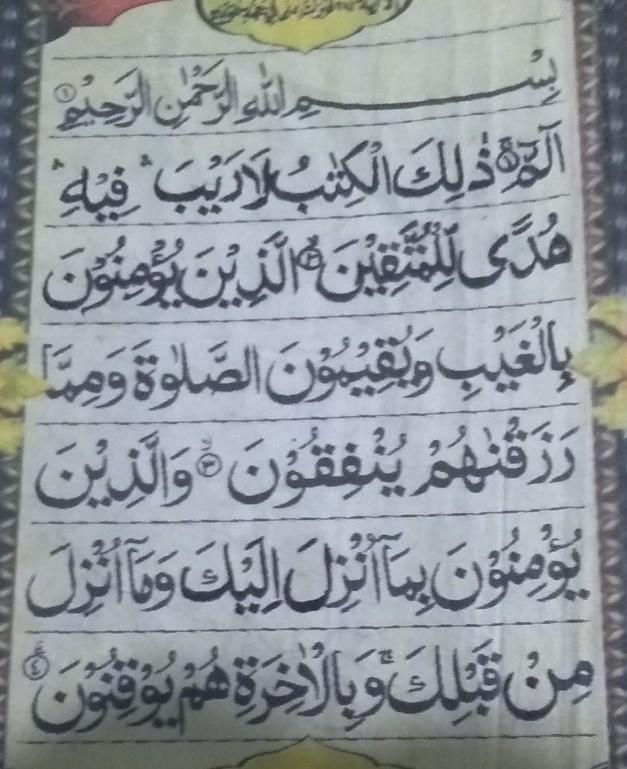 بِسْمِ اللهِ الرَّحْمٰنِ الرَّحِيْمِ ۝۱
الٓمّٓ ۝ ذٰلِكَ الْكِتٰبُ لَا رَيْبَ ۛ فِيْهِ ۛ
هُدًى لِّلْمُتَّقِيْنَ ۝۲ الَّذِيْنَ يُؤْمِنُوْنَ
بِالْغَيْبِ وَيُقِيْمُوْنَ الصَّلٰوةَ وَمِمَّا
رَزَقْنٰهُمْ يُنْفِقُوْنَ ۝۳ وَالَّذِيْنَ
يُؤْمِنُوْنَ بِمَآ اُنْزِلَ اِلَيْكَ وَمَآ اُنْزِلَ
مِنْ قَبْلِكَ ۚ وَبِالْاٰخِرَةِ هُمْ يُوْقِنُوْنَ ۝۴